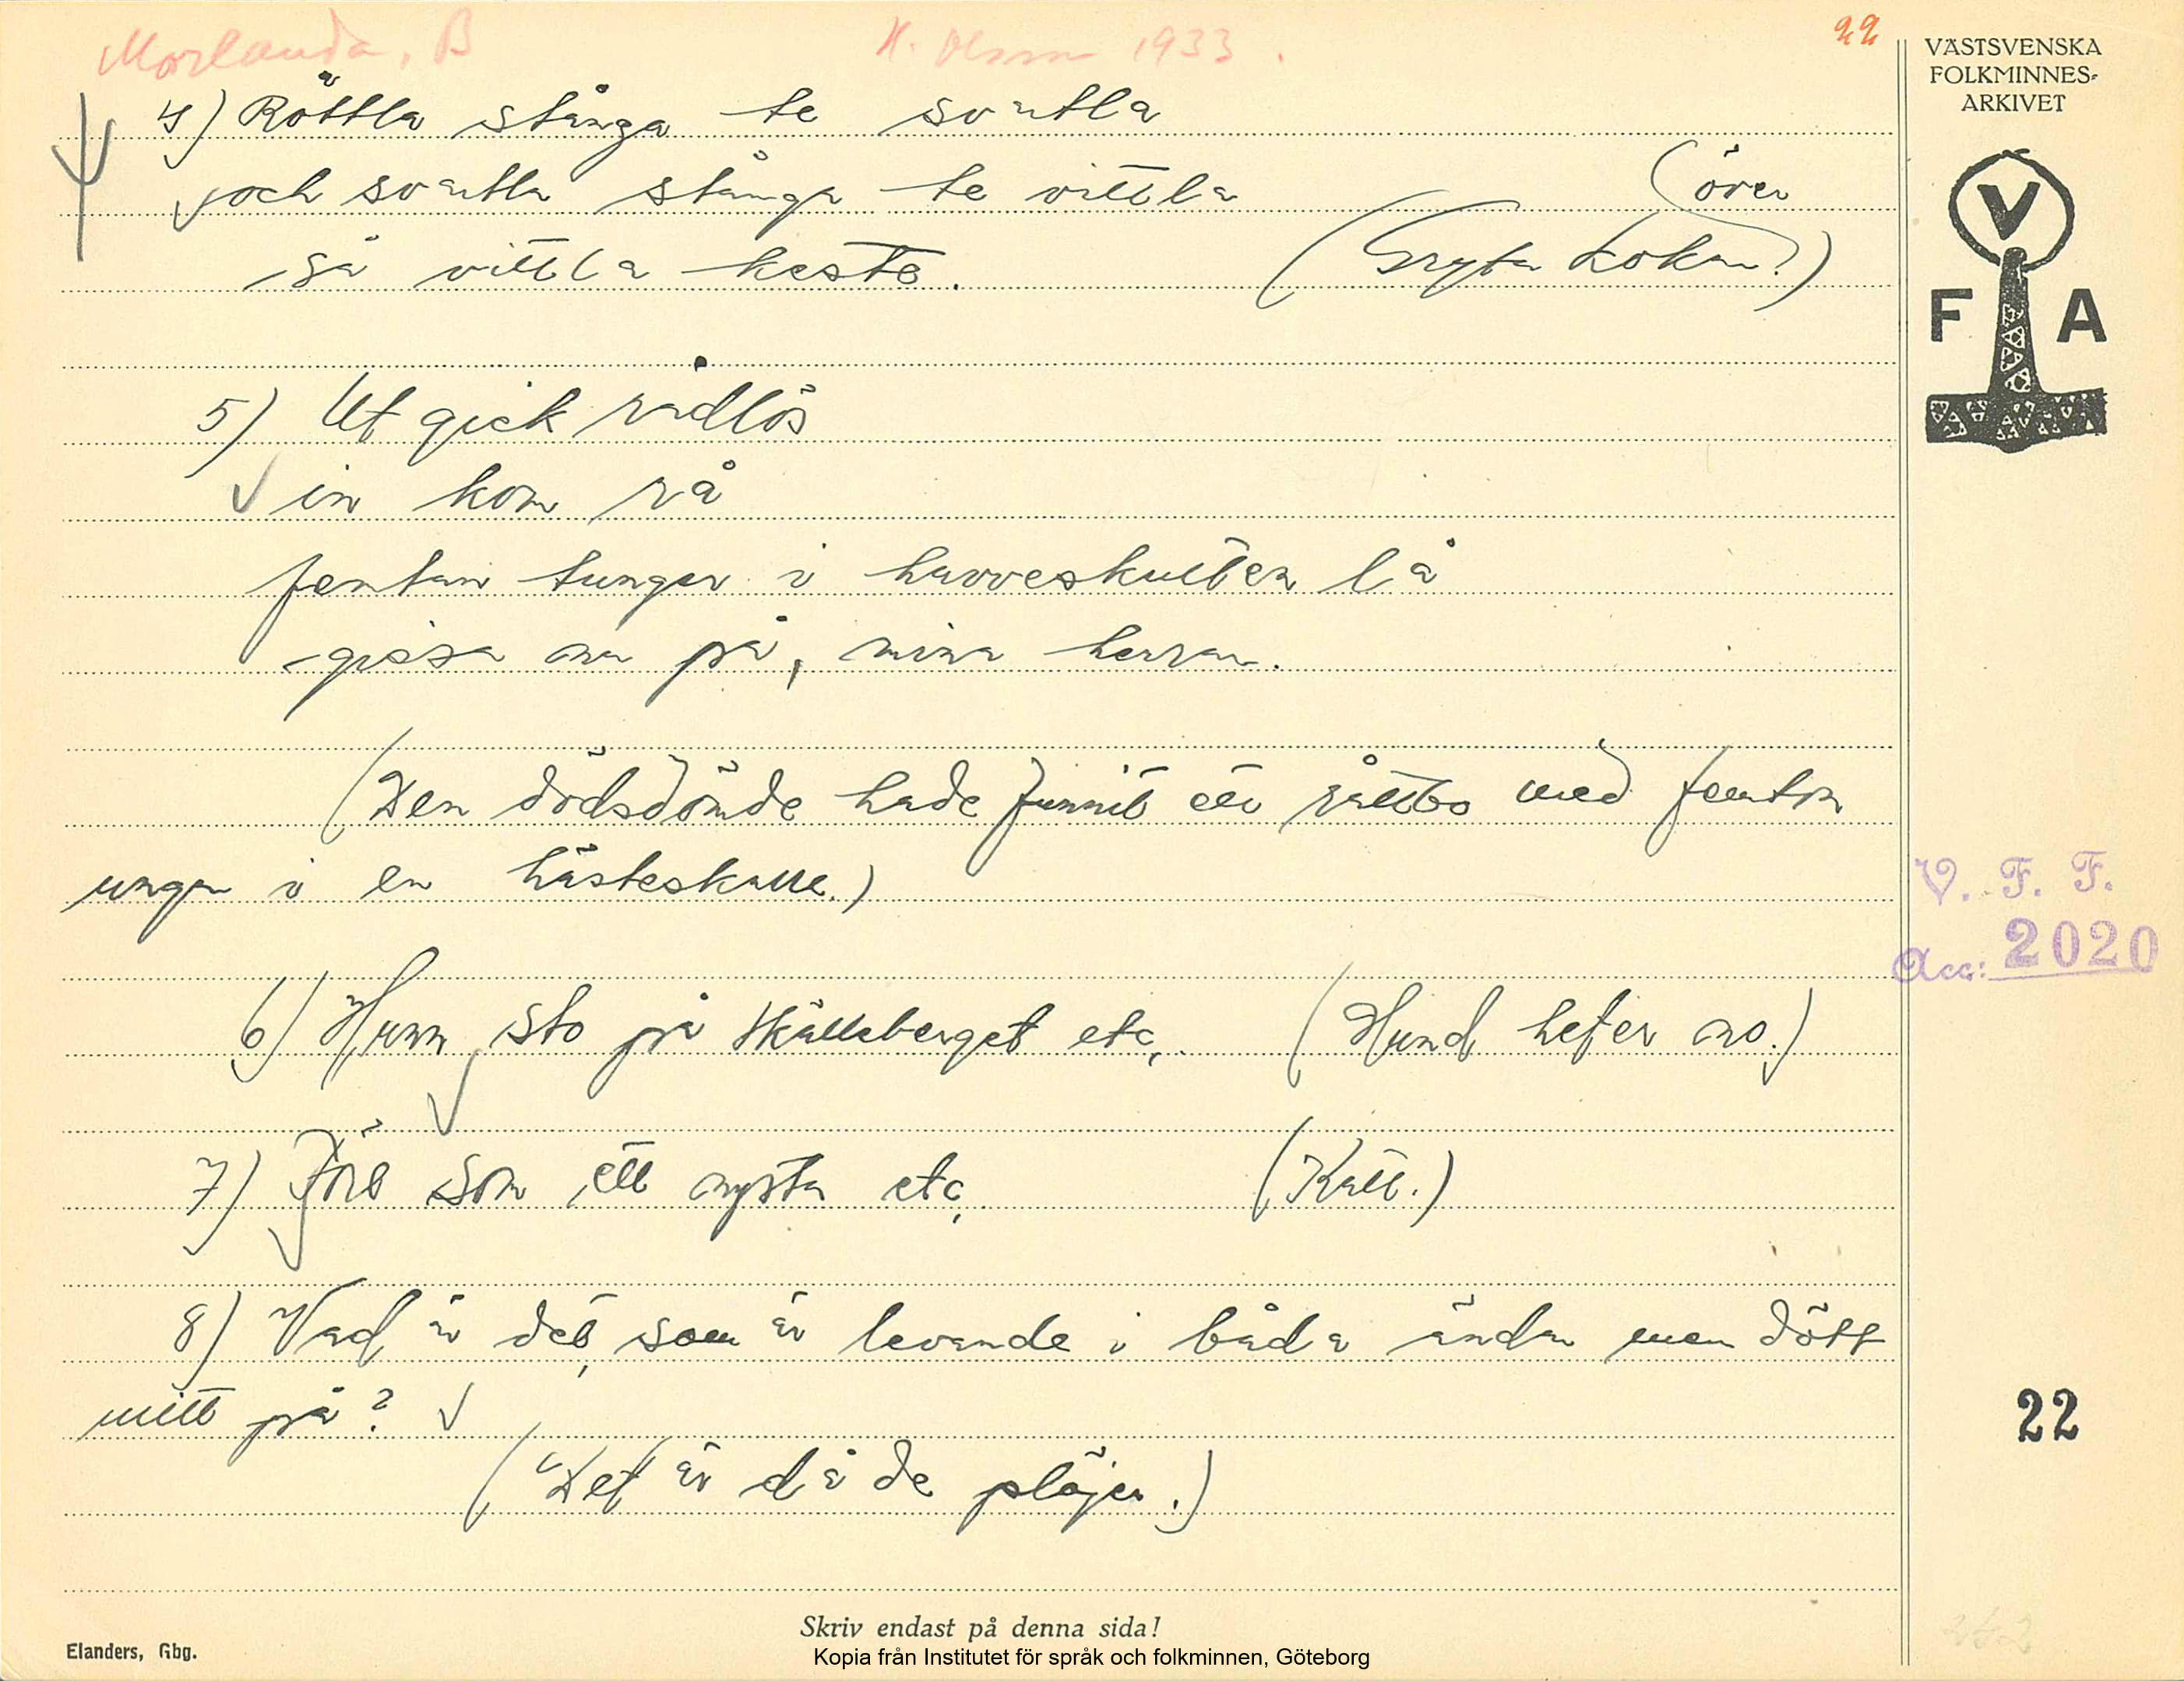 Morlanda, B
H. Olsson 1933.
22
VÄSTSVENSKA
FOLKMINNES-
ARKIVET
V
F A
4) Röttla stånga te svattla
och svattla stånga te vittla
så vittla keste.
(Gryta kokar över?)
5) Ut gick rådlös
in kom rå
femtan tunger i havveskulten lå
gissa nu på, mina herrar.
(Den dödsdömde hade funnit ett råttbo med femton
ungar i en hästeskalle.)
6) Hunn sto på Hälleberget etc. (Hund heter no.)
7) Först som ett nysta etc. (Katt.)
8) Vad är det, som är levande i båda ändar men dött
mitt på?
("Det är då de plöjer.)
V. F. F.
Acc: 2020
22
Skriv endast på denna sida!
Elanders, Gbg.
Kopia från Institutet för språk och folkminnen, Göteborg